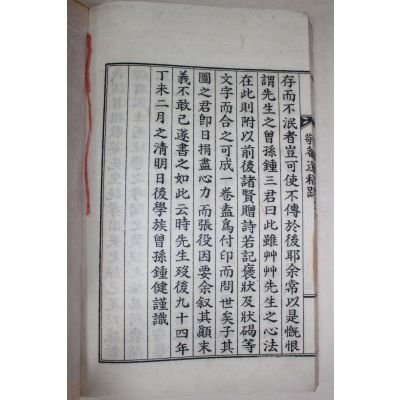 存而不泯者豈可使不傳於後耶余常以是慨恨
謂先生之曾孫鍾三君曰此雖艸艸先生之心法
在此則附以前後諸賢贈詩若記褒狀及狀碣等
文字而合之可成一卷盍爲付印而問世矣子其
圖之君卽日捐盡心力而張役因要余叙其顚末
義不敢已遂書之如此云時先生歿後九十四年
丁未二月之淸明日後學族曾孫鍾健謹識
遺稿跋